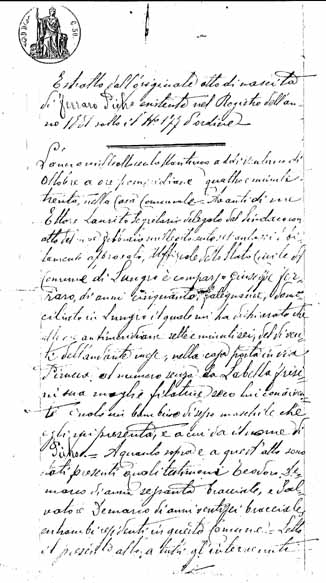 C. 50
Estratto dall'originale atto di nascita
di Ferraro Pietro esistente nel Registro dell'an-
no 1881 sotto il N° 177 d'ordine
L'anno milleottocentottantuno a dì ventuno di
Ottobre a ore pomeridiane quattro e minuti
trenta, nella Casa Comunale. Avanti di me
Ettore Segretario delegato dal Sindaco con
atto del milleottocentosettantasei, de-
bitamente approvato, Uffiziale dello Stato Civile del
Comune di Lungro è comparso Giuseppe Fer-
raro di anni cinquanta, falegname, domi-
ciliato in Lungro il quale mi ha dichiarato che
alle ore antimeridiane sette e minuti sei, del dì ven-
ti dell'andante mese, nella casa posta in via
al numero senza, da La bella
sua moglie filatrice seco lui conviven-
te è nato un bambino di sesso maschile che
egli mi presenta, e a cui da il nome di
Pietro. A quanto sopra e a questo atto sono
stati presenti quali testimoni Teodoro De-
marco di anni sessanta bracciale, e Sal-
vatore Demarco di anni ventisei bracciale,
entrambi residenti in questo Comune. Letto
il presente atto a tutti gl'intervenuti